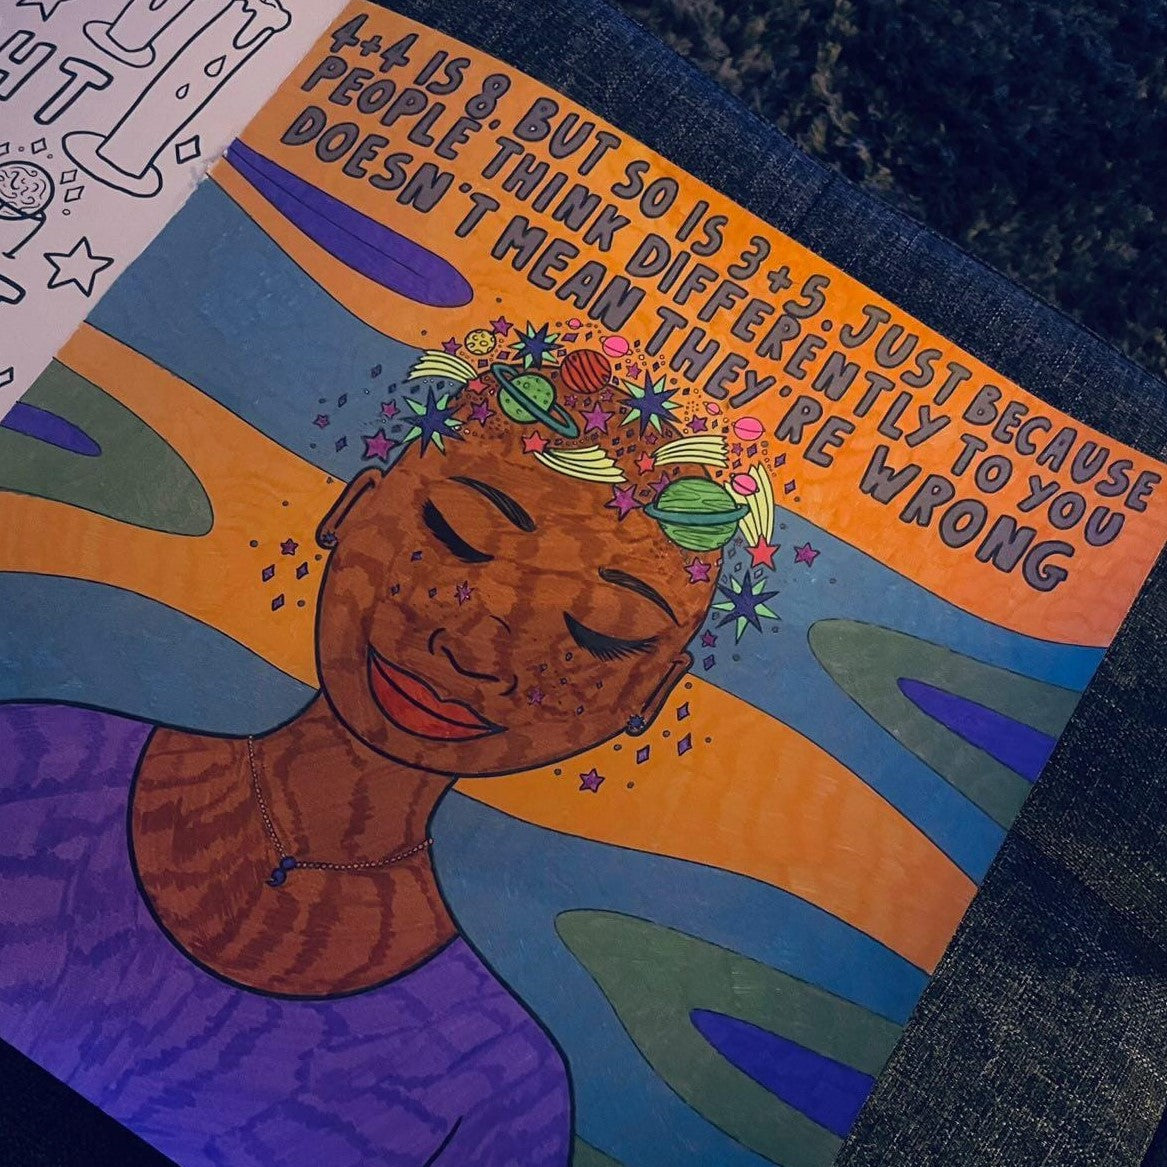 HT
4+4 IS 8. BUT SO IS 3+5. JUST BECAUSE
PEOPLE THINK DIFFERENTLY TO YOU
DOESN'T MEAN THEY'RE WRONG